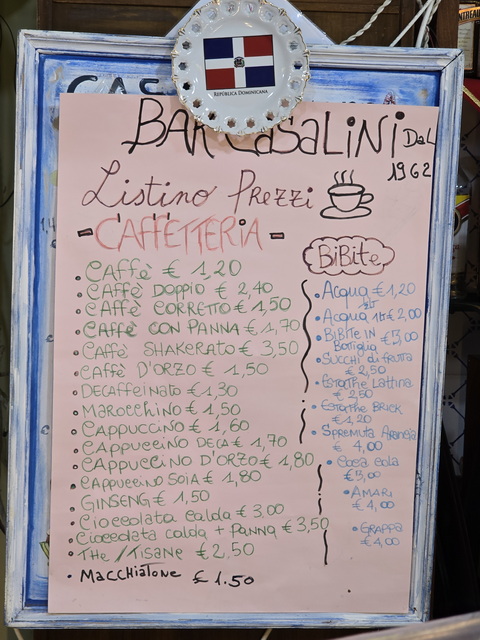 REPÚBLICA DOMINICANA
BAR CASALINI Dal
1962
Listino Prezzi
- CAFFETTERIA -
CAFFè € 1,20
CAFFè DOPPIO € 2,40
CAFFè CORRETTO € 1,50
CAFFè CON PANNA € 1,70
CAFFè SHAKERATO € 3,50
CAFFè D'ORZO € 1,50
DECAFFEINATO € 1,30
MAROCCHINO € 1,50
CAPPUCCINO € 1,60
CAPPUCCINO DECA € 1,70
CAPPUCCINO D'ORZO € 1,80
CAPPUCCINO SOIA € 1,80
GINSENG € 1,50
Cioccolata Calda € 3,00
Cioccolata calda + Panna € 3,50
THE / TISANE € 2,50
MACCHIATONE € 1.50
BiBite
Acqua € 1,20
Acqua 1lt € 2,00
BIBITE IN €3,00
Bottiglia
SUCCHI di fRUTTA
€ 2,50
Estathe Lattina
€ 2,50
Estathe BRICK
€ 1,20
SPREMUTA Arancia
€ 4,00
Coca Cola
€ 3,00
AMARI
€ 4,00
GRAPPA
€ 4,00